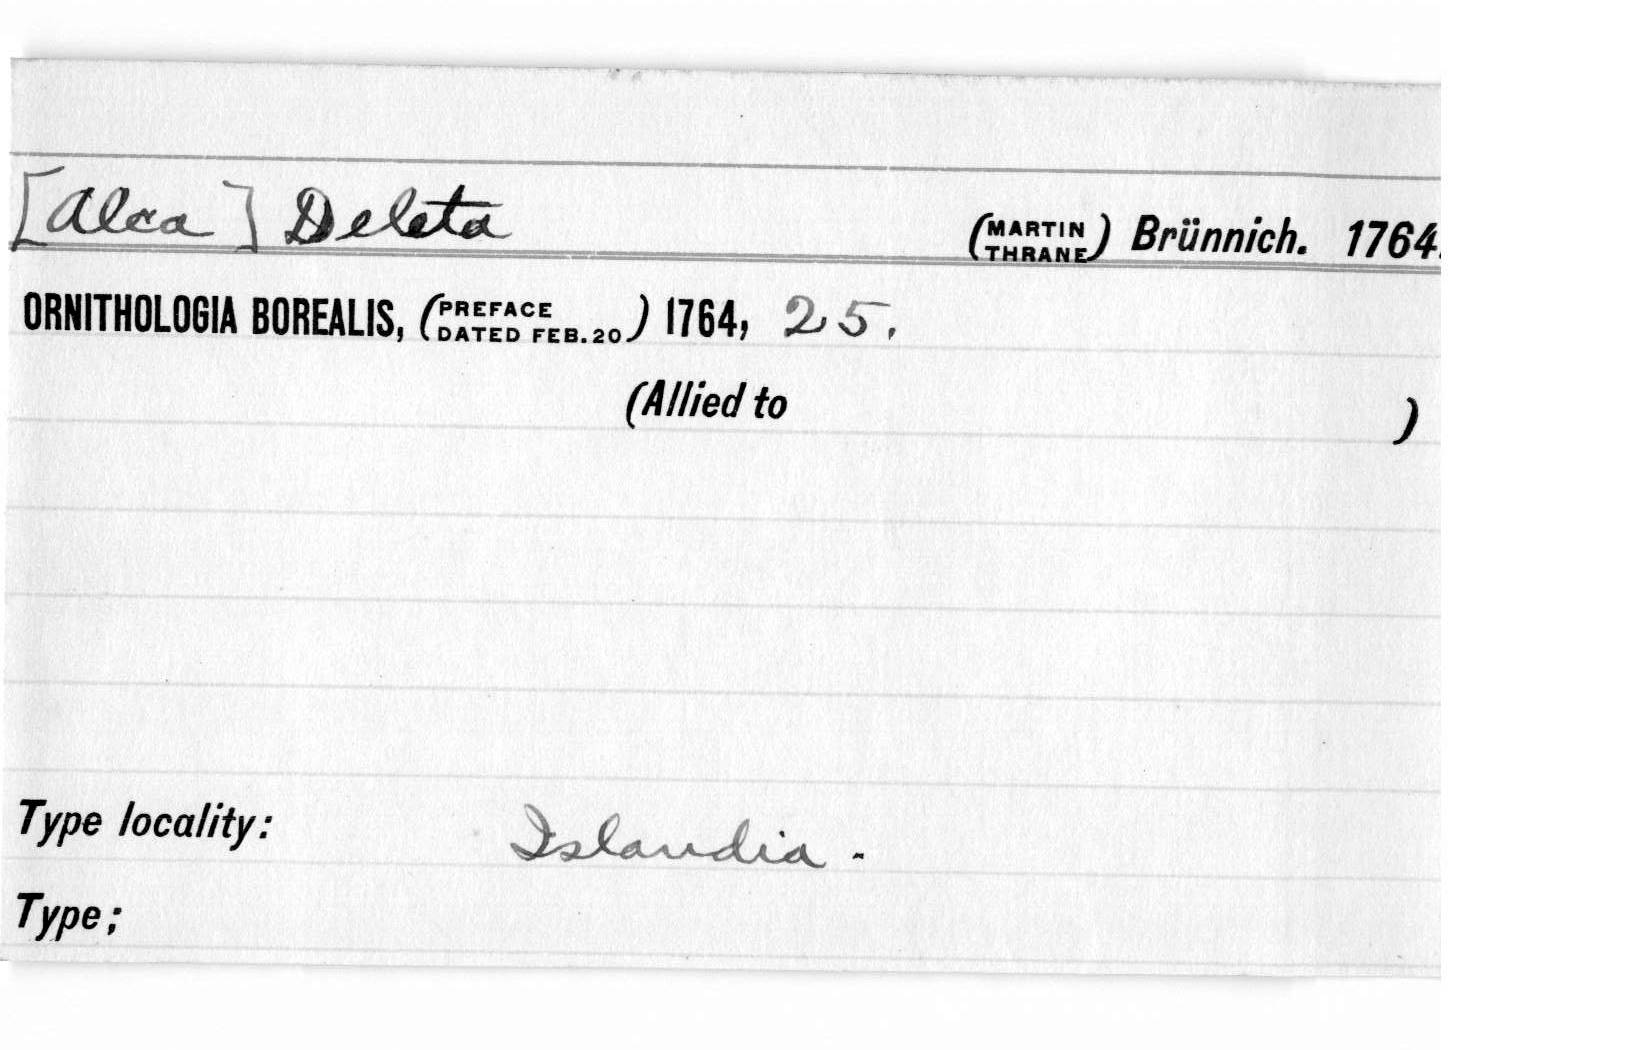 [Alca] Deleta (MARTIN THRANE) Brünnich. 1764.
ORNITHOLOGIA BOREALIS, (PREFACE DATED FEB. 20) 1764, 25.
(Allied to )
Type locality: Islandia.
Type;